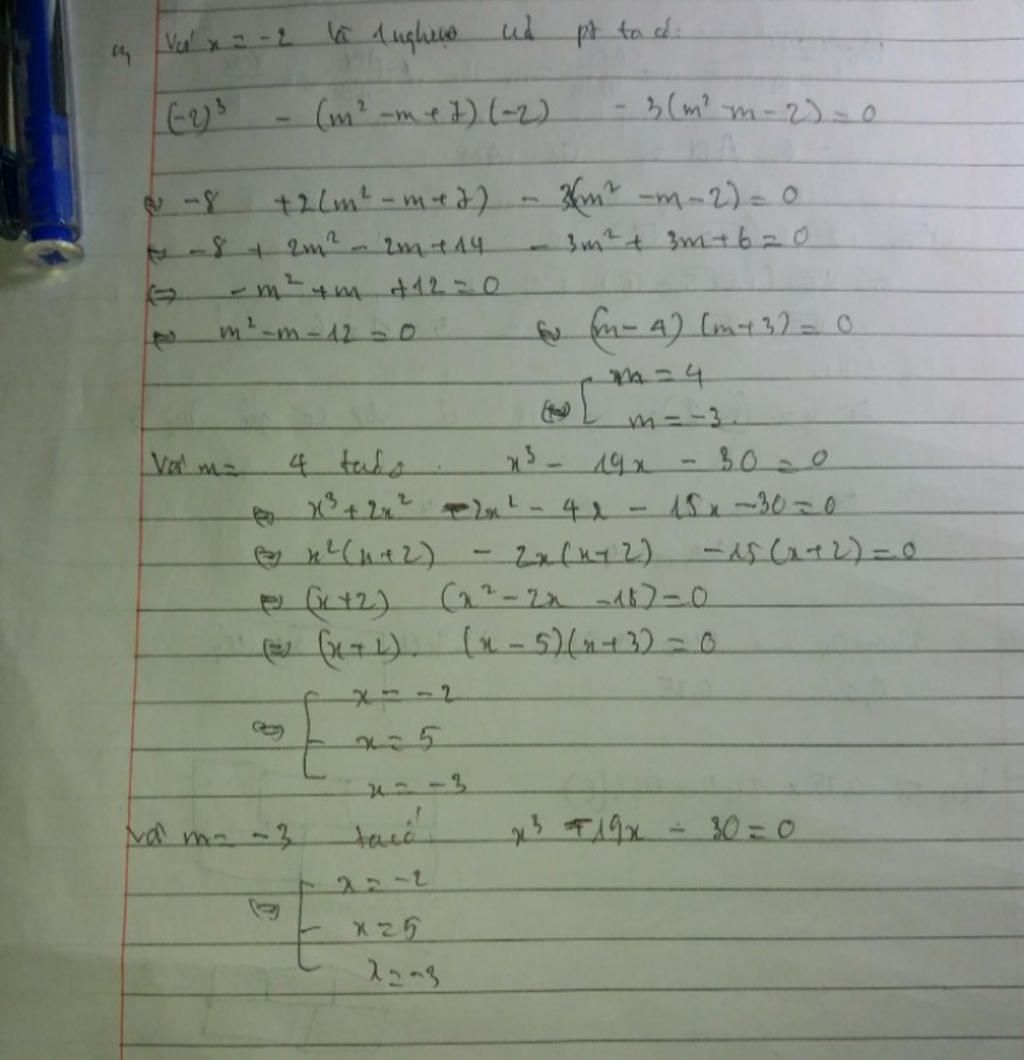 a, Với x = -2 là 1 nghiệm củ pt ta có:
(-2)³ - (m² - m + 7)(-2) - 3(m² - m - 2) = 0
⇔ -8 + 2(m² - m + 7) - 3(m² - m - 2) = 0
⇔ -8 + 2m² - 2m + 14 - 3m² + 3m + 6 = 0
⇔ -m² + m + 12 = 0
⇔ m² - m - 12 = 0 ⇔ (m - 4)(m + 3) = 0
m = 4
⇔ [ m = -3.
Với m = 4 ta có x³ - 19x - 30 = 0
⇔ x³ + 2x² - 2x² - 4x - 15x - 30 = 0
⇔ x²(x + 2) - 2x(x + 2) - 15(x + 2) = 0
⇔ (x + 2) (x² - 2x - 15) = 0
⇔ (x + 2). (x - 5)(x + 3) = 0
x = -2
⇔ [ x = 5
x = -3
Với m = -3 ta có x³ - 19x - 30 = 0
x = -2
⇔ [ x = 5
x = -3